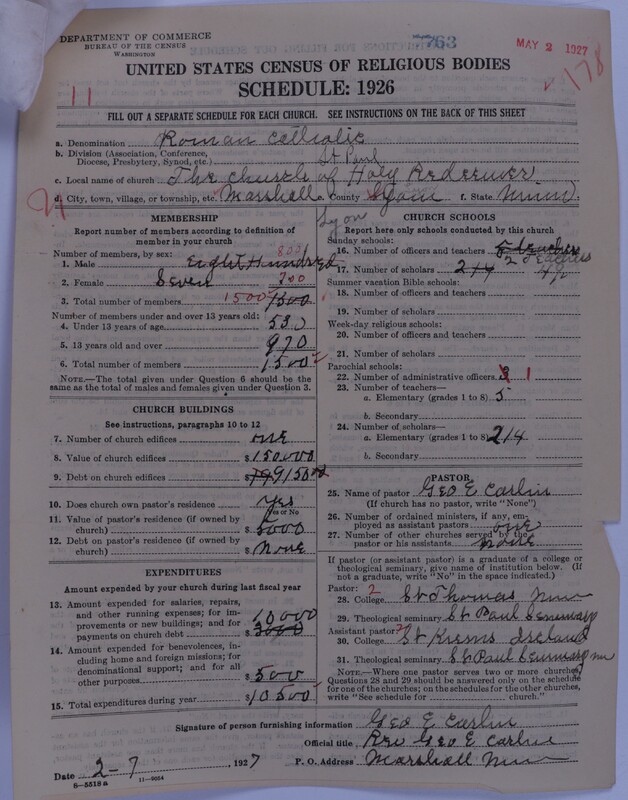 DEPARTMENT OF COMMERCE
BUREAU OF THE CENSUS
WASHINGTON
7763
MAY 2 1927
178
UNITED STATES CENSUS OF RELIGIOUS BODIES
SCHEDULE: 1926
11
FILL OUT A SEPARATE SCHEDULE FOR EACH CHURCH. SEE INSTRUCTIONS ON THE BACK OF THIS SHEET
a. Denomination Roman Catholic
b. Division (Association, Conference,
Diocese, Presbytery, Synod, etc.) St Paul
c. Local name of church The Church of Holy Redeemer
d. City, town, village, or township, etc. Marshall e. County Lyon f. State Minn
Lyon
MEMBERSHIP
Report number of members according to definition of
member in your church
Number of members, by sex: 800
1. Male Eight Hundred
2. Female Seven 700
3. Total number of members 1500 1500
Number of members under and over 13 years old:
4. Under 13 years of age 530
5. 13 years old and over 970
6. Total number of members 1500
NOTE.—The total given under Question 6 should be
same as the total of males and females given under Question 3.
CHURCH BUILDINGS
See instructions, paragraphs 10 to 12
7. Number of church edifices one
8. Value of church edifices $150.000
9. Debt on church edifices $ 9150
10. Does church own pastor's residence Yes
Yes or No
11. Value of pastor's residence (if owned by
church) $5000
12. Debt on pastor's residence (if owned by
church) $None
EXPENDITURES
Amount expended by your church during last fiscal year
13. Amount expended for salaries, repairs,
and other running expenses; for im-
provements or new buildings; and for
payments on church debt $ 10000
3000
14. Amount expended for benevolences, in-
cluding home and foreign missions; for
denominational support; and for all
other purposes $500
15. Total expenditures during year $10500
CHURCH SCHOOLS
Report here only schools conducted by this church
Sunday schools:
16. Number of officers and teachers
17. Number of scholars 214
Summer vacation Bible schools:
18. Number of officers and teachers
19. Number of scholars
Week-day religious schools:
20. Number of officers and teachers
21. Number of scholars
Parochial schools:
22. Number of administrative officers 3 1
23. Number of teachers—
a. Elementary (grades 1 to 8) 5
b. Secondary
24. Number of scholars—
a. Elementary (grades 1 to 8) 214
b. Secondary
PASTOR
25. Name of pastor Geo E Carlin
(If church has no pastor, write "None")
26. Number of ordained ministers, if any, em-
ployed as assistant pastors one
27. Number of other churches served by the
pastor or his assistants none
If pastor (or assistant pastor) is a graduate of a college or
theological seminary, give name of institution below. (If
not a graduate, write "No" in the space indicated.)
Pastor: 2
28. College St Thomas Minn
29. Theological seminary St Paul Seminary
Assistant pastor:
30. College Ireland
31. Theological seminary St Paul Seminary Minn
NOTE.—Where one pastor serves two or more churches,
Questions 28 and 29 should be answered only on the schedule
for one of the churches; on the schedules for the other churches,
write "See schedule for church."
Signature of person furnishing information Geo E Carlin
Official title Rev Geo E Carlin
Date 2-7, 1927 P. O. Address Marshall Minn
8-5518 a 11-9054